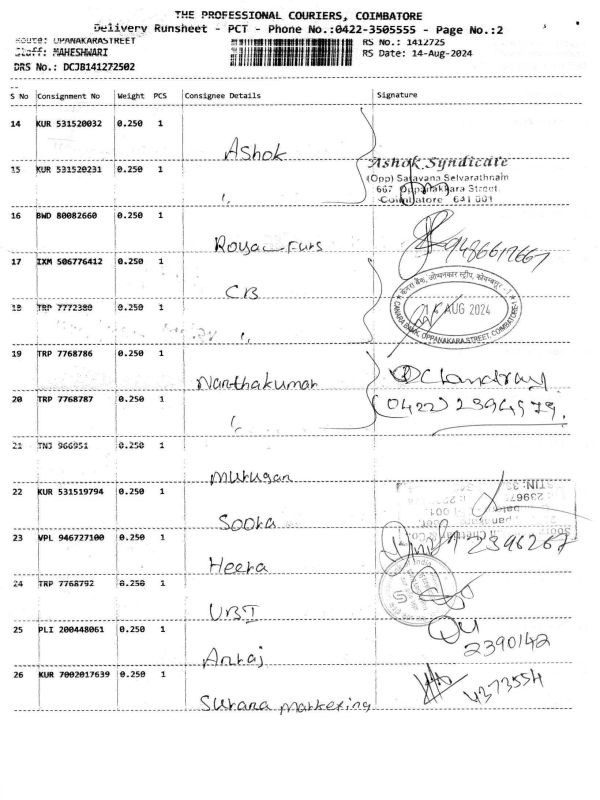 THE PROFESSIONAL COURIERS, COIMBATORE
Delivery Runsheet - PCT - Phone No.:0422-3505555 - Page No.:2
Route: OPPANAKARASTREET RS No.: 1412725
Staff: MAHESHWARI RS Date: 14-Aug-2024
DRS No.: DCJB141272502
S No Consignment No Weight PCS Consignee Details Signature
14 KUR 531520032 0.250 1
Ashok
Ashok Syndicate
15 KUR 531520231 0.250 1
(Opp) Saravana Selvarathnam
667 Oppanakkara Street
Coimbatore 641 001
16 BWD 80082660 0.250 1
Royal Furs
9486617667
17 IXM 506776412 0.250 1
CB
கனரா
CANARA BANK, OPPANAKARA STREET, COIMBATORE-1
14 AUG 2024
18 TRP 7772380 0.250 1
19 TRP 7768786 0.250 1
Nanthakumar
20 TRP 7768787 0.250 1
(0422) 2394979.
21 TNJ 966951 0.250 1
Murugan
22 KUR 531519794 0.250 1
Soora
23 VPL 946727100 0.250 1
2396267
Heera
24 TRP 7768792 0.250 1
UBI
25 PLI 200448061 0.250 1
2390142
Anraj
26 KUR 7002017639 0.250 1
4373554
Surana Marketing